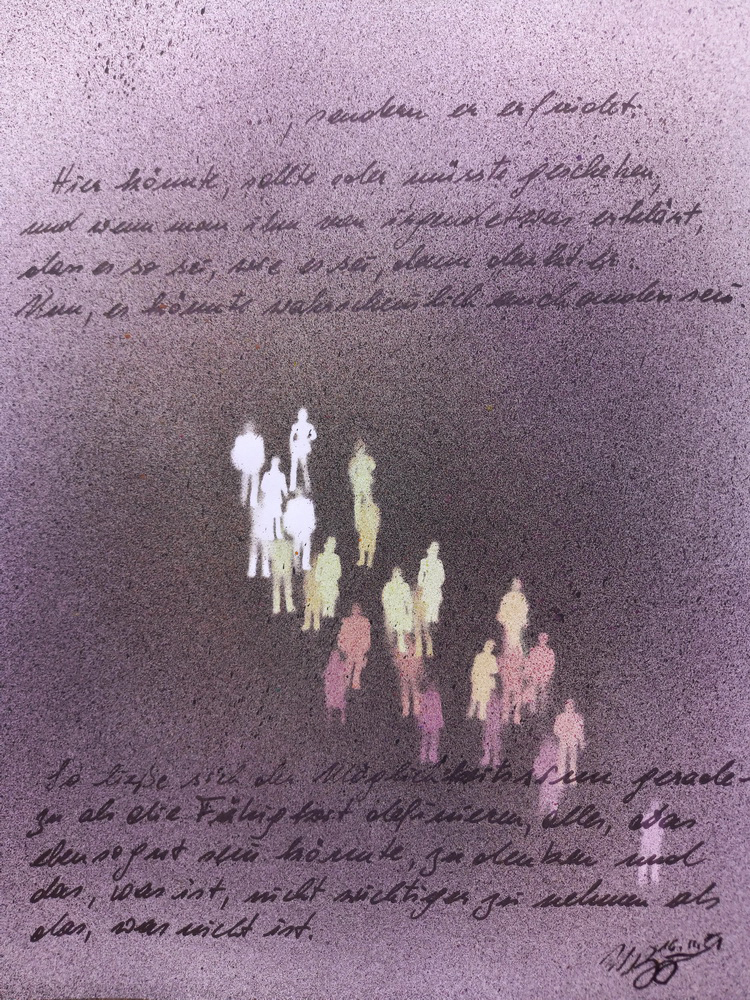 ..., sondern er erfindet:
Hier könnte, sollte oder müsste geschehen,
und wenn man ihm von irgendetwas erklärt,
dass es so sei, wie es sei, dann denkt er:
Nun, es könnte wahrscheinlich auch anders sein.
So ließe sich der Möglichkeitssinn gerade-
zu als die Fähigkeit definieren, alles, was
ebensogut sein könnte, zu denken und
das, was ist, nicht wichtiger zu nehmen als
das, was nicht ist.